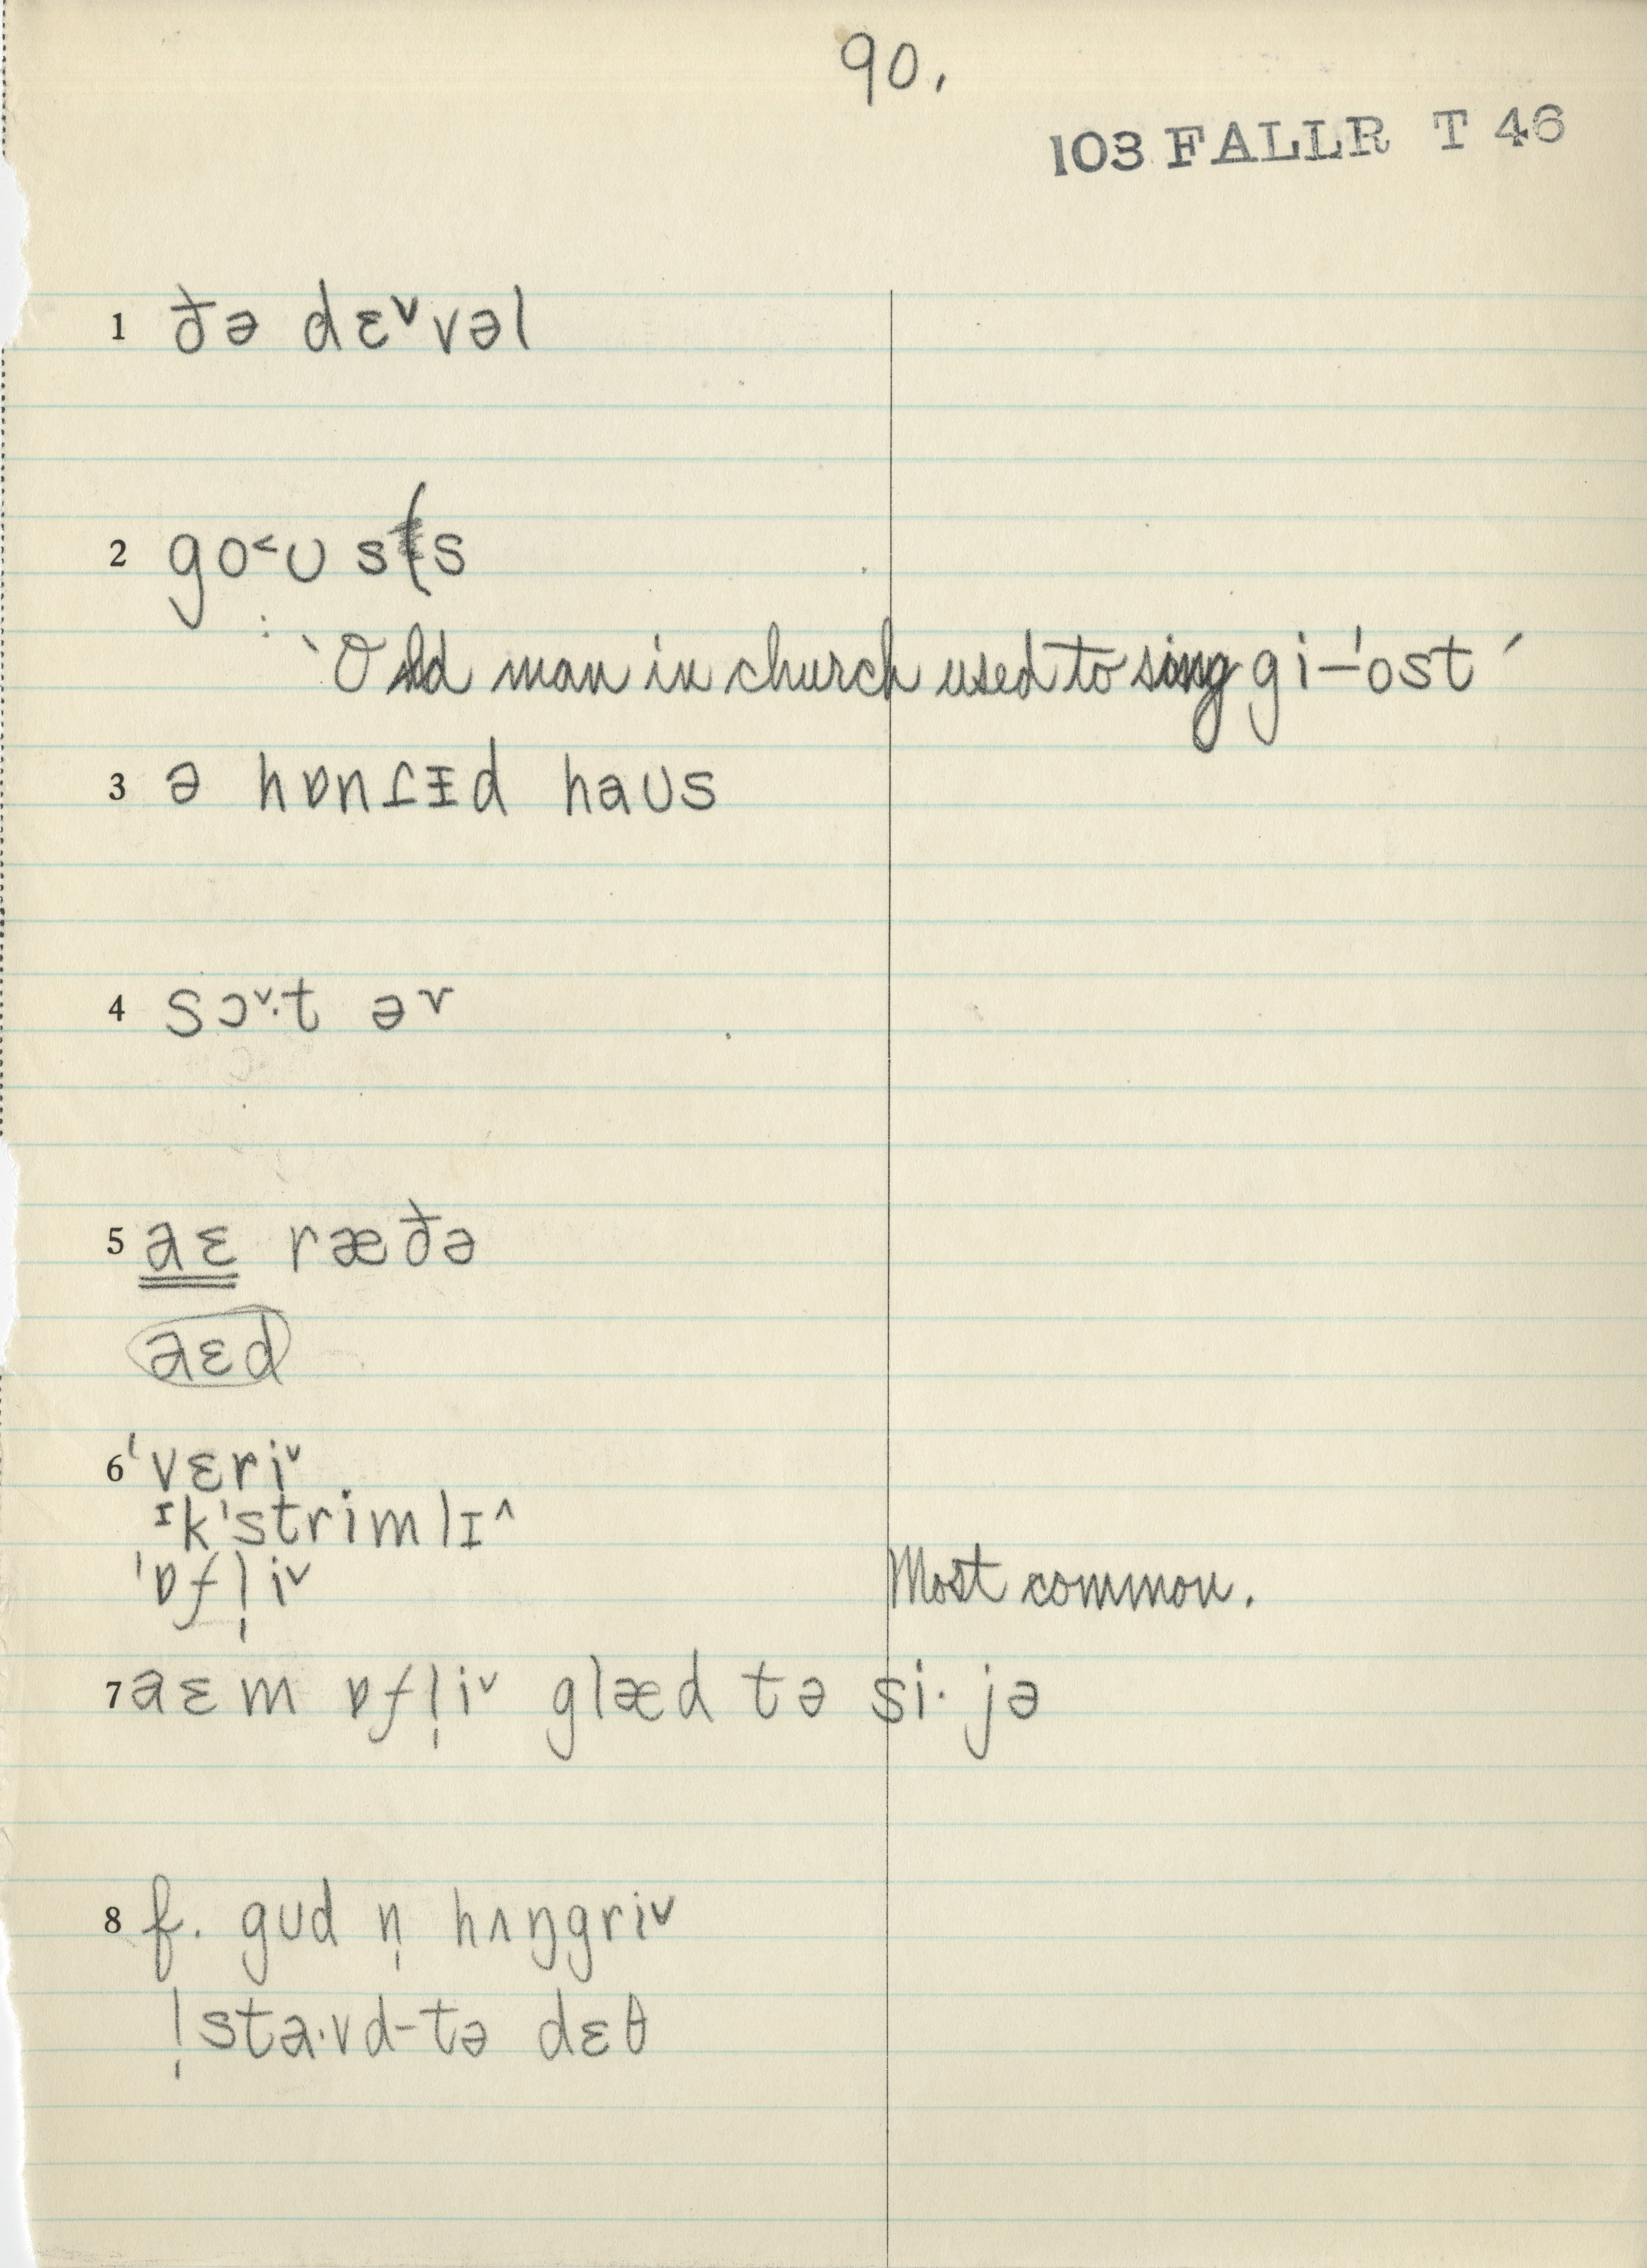 90.
103 FALLR T 46
1 ðə dɛ˅vəl
2 go˂ʊ s(s
: `Old man in church used to sing gi-ˈost´
3 ə hɒnɾᵻd haʊs
4 sɔ˅·t əv
5 aɛ ræðə
aɛd
6 ˈvɛri˅
ɪkˈstrimlɪ˄
ˈɒfl̩i˅ Most common.
7 aɛm ɒfl̩i˅ glæd tə si· jə
8 f. gʊd n̩ hʌŋgri˅
l̩ sta·vd-tə dɛθ